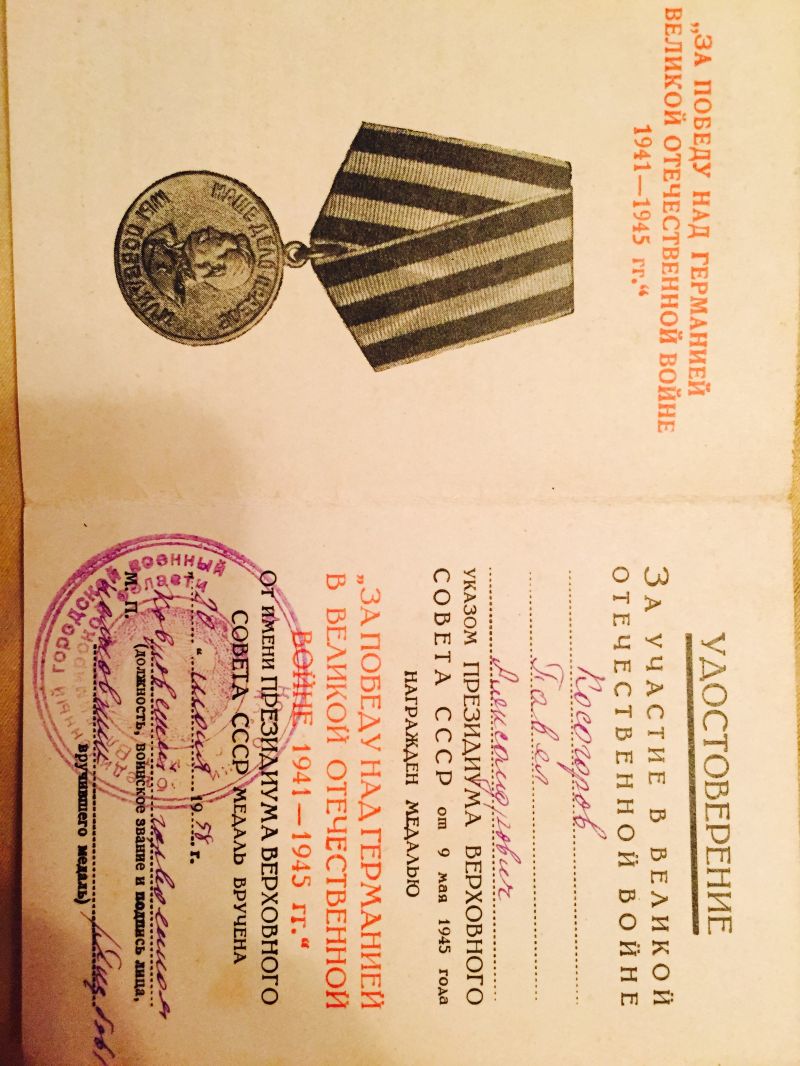 „ЗА ПОБЕДУ НАД ГЕРМАНИЕЙ
ВЕЛИКОЙ ОТЕЧЕСТВЕННОЙ ВОЙНЕ
1941—1945 гг.“
НАШЕ ДЕЛО ПРАВОЕ
МЫ ПОБЕДИЛИ
УДОСТОВЕРЕНИЕ
ЗА УЧАСТИЕ В ВЕЛИКОЙ
ОТЕЧЕСТВЕННОЙ ВОЙНЕ
Косогоров
Павел
Александрович
УКАЗОМ ПРЕЗИДИУМА ВЕРХОВНОГО
СОВЕТА СССР от 9 мая 1945 года
НАГРАЖДЕН МЕДАЛЬЮ
„ЗА ПОБЕДУ НАД ГЕРМАНИЕЙ
В ВЕЛИКОЙ ОТЕЧЕСТВЕННОЙ
ВОЙНЕ 1941—1945 гг.“
ОТ ИМЕНИ ПРЕЗИДИУМА ВЕРХОВНОГО
СОВЕТА СССР МЕДАЛЬ ВРУЧЕНА
июня 1958 г.
М. П.
(должность, воинское звание и подпись лица,
вручившего медаль)
городской военный
области